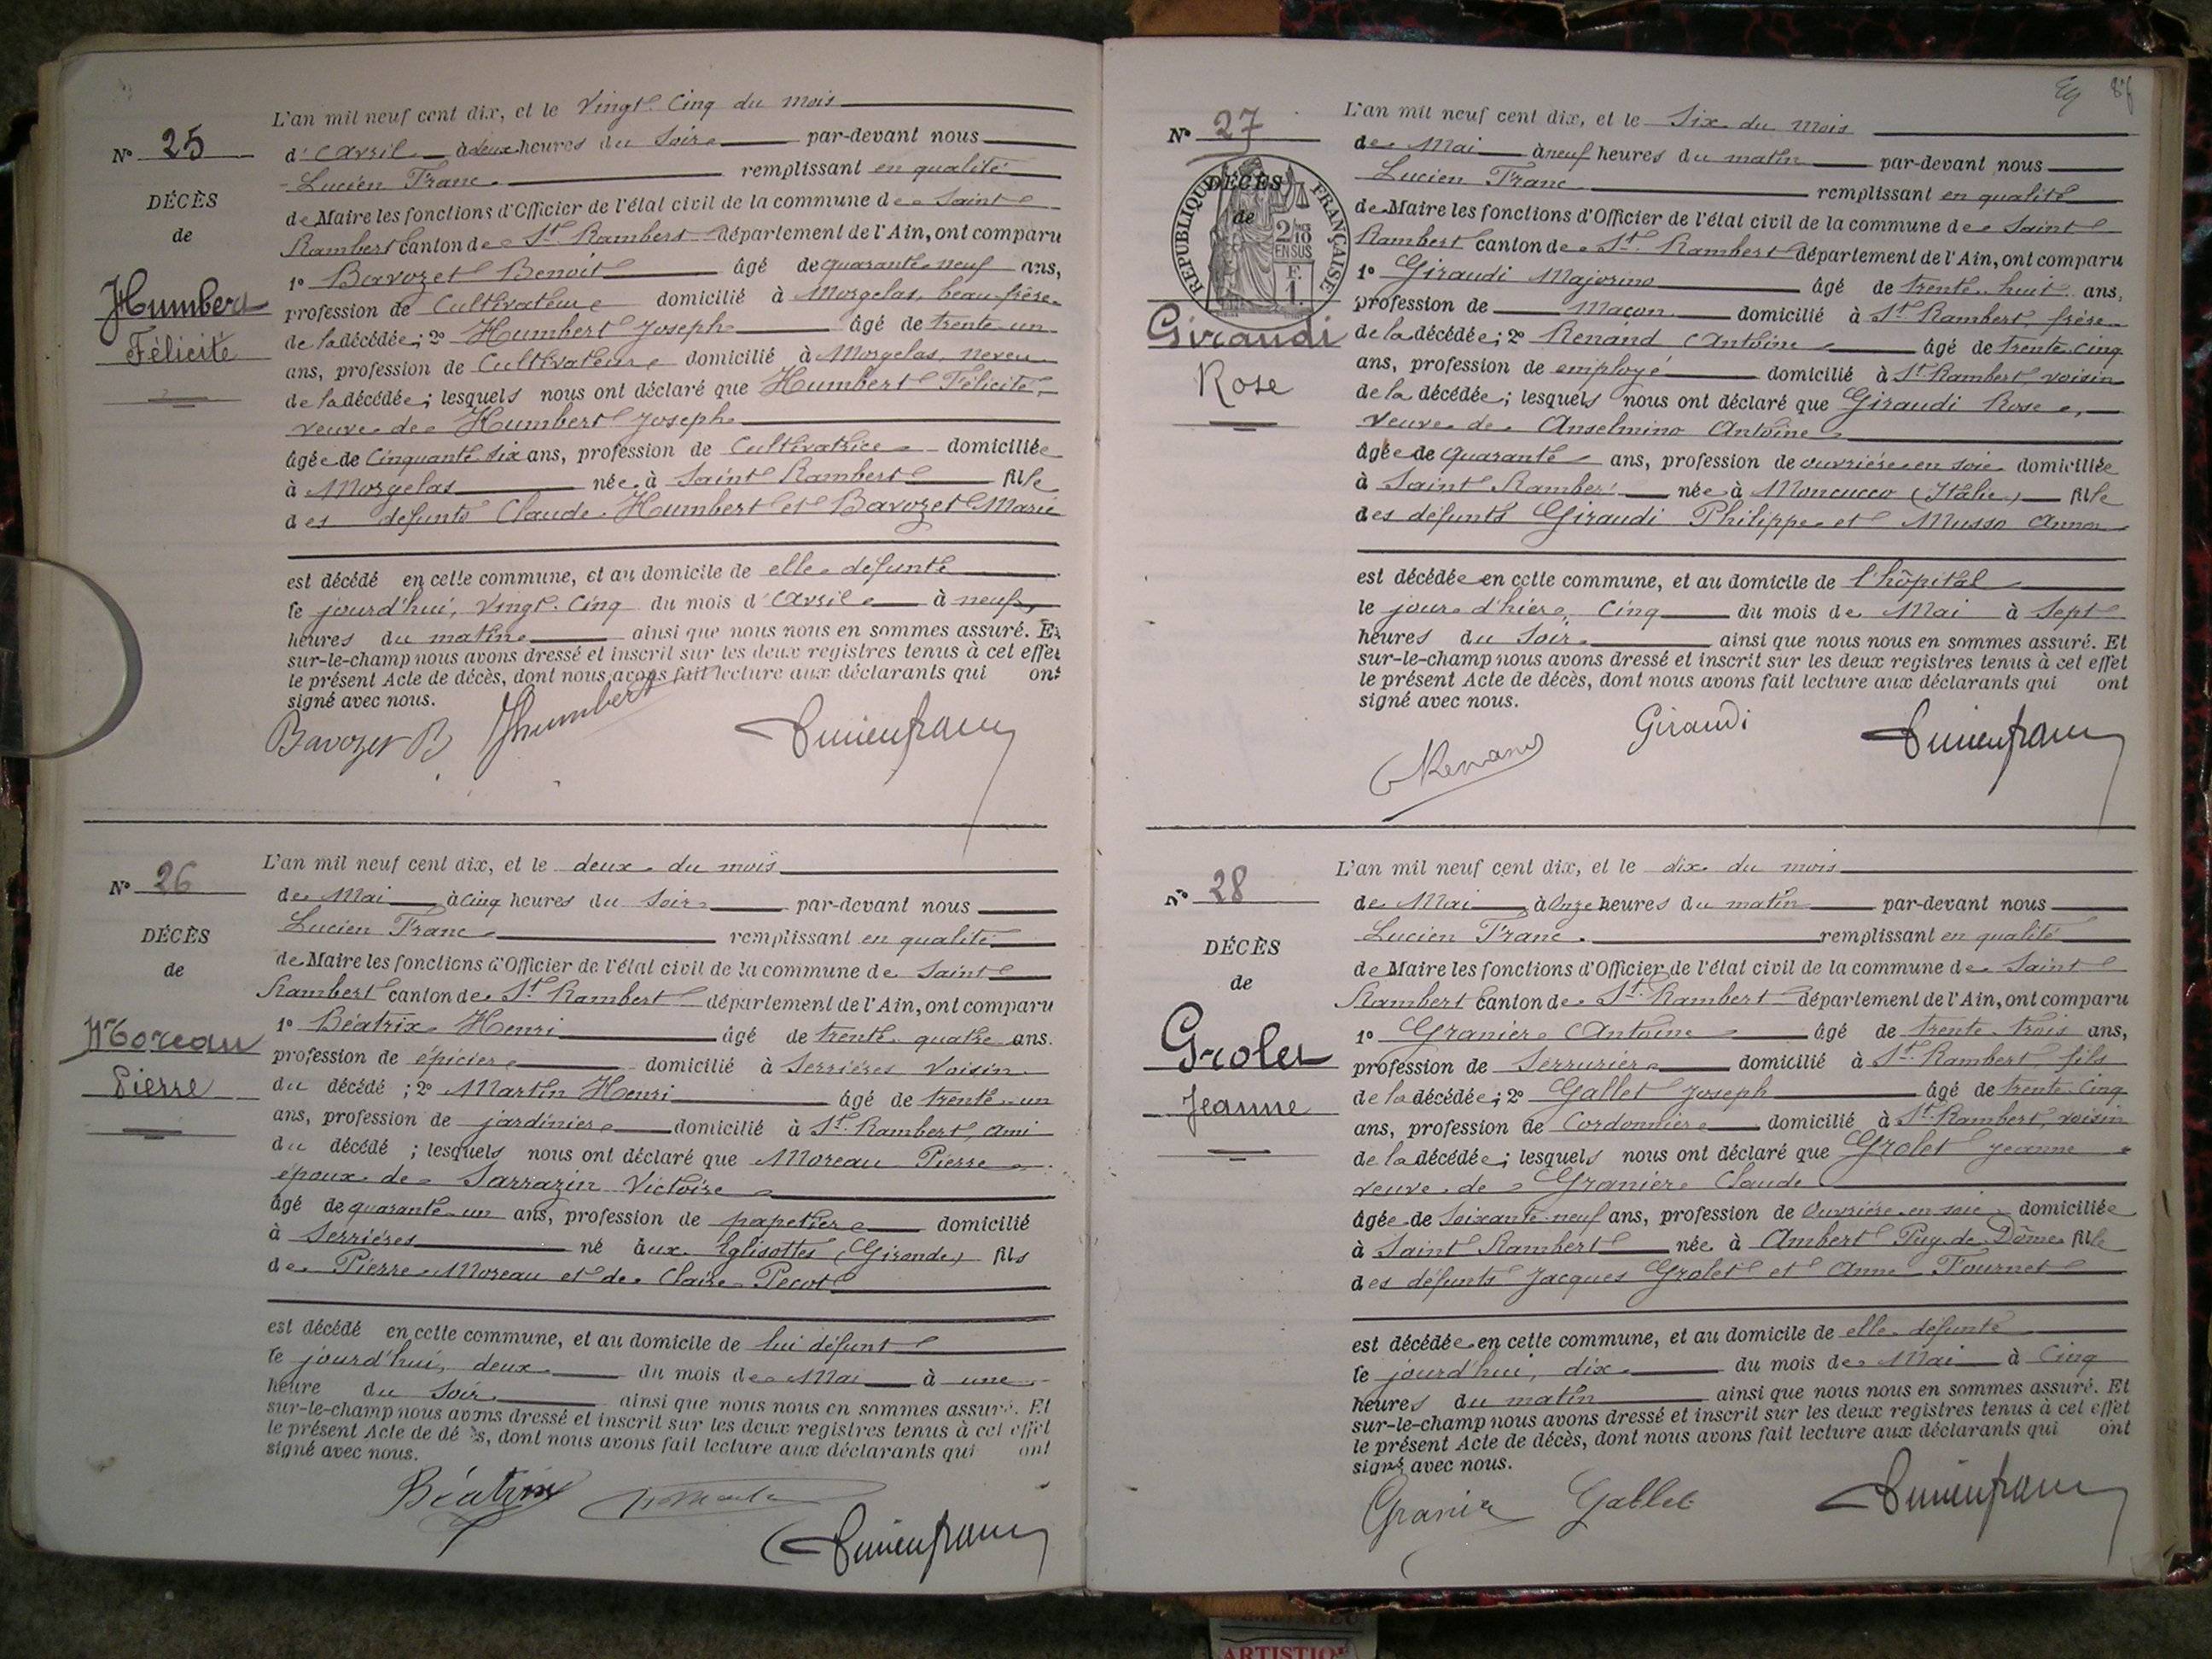 L'an mil neuf cent dix, et le Vingt-Cinq du mois
N° 25
d'Avril à deux heures du Soir par-devant nous
Lucien Franc remplissant en qualité
DÉCÈS
de Maire les fonctions d'Officier de l'état civil de la commune de Saint
de
Rambert canton de St Rambert département de l'Ain, ont comparu
Humbert
Félicité
1° Bavozet Benoit âgé de quarante-neuf ans,
profession de Cultivateur domicilié à Morgelas, beau-frère
de la décédée; 2° Humbert Joseph âgé de trente-un
ans, profession de Cultivateur domicilié à Morgelas, neveu
de la décédée; lesquels nous ont déclaré que Humbert Félicité,
veuve de Humbert Joseph
âgée de Cinquante-six ans, profession de Cultivatrice domiciliée
à Morgelas née à Saint Rambert fille
des défunts Claude Humbert et Bavozet Marie
est décédé en cette commune, et au domicile de elle défunte
le jourd'hui, vingt-cinq du mois d'Avril à neuf
heures du matin ainsi que nous nous en sommes assuré. Et
sur-le-champ nous avons dressé et inscrit sur les deux registres tenus à cet effet
le présent Acte de décès, dont nous avons fait lecture aux déclarants qui ont
signé avec nous.
Bavozet B JHumbert Lucien franc
L'an mil neuf cent dix, et le deux du mois
N° 26
de Mai à cinq heures du Soir par-devant nous
Lucien Franc remplissant en qualité
DÉCÈS
de Maire les fonctions d'Officier de l'état civil de la commune de Saint
de
Rambert canton de St Rambert département de l'Ain, ont comparu
Moreau
Pierre
1° Béatrix Henri âgé de trente-quatre ans.
profession de épicier domicilié à Serrières, Voisin
du décédé ; 2° Martin Henri âgé de trente-un
ans, profession de jardinier domicilié à St Rambert, ami
du décédé ; lesquels nous ont déclaré que Moreau Pierre
époux de Sarrazin Victoire
âgé de quarante-un ans, profession de papetier domicilié
à Serrières né aux Eglisottes (Gironde) fils
de Pierre Moreau et de Claire Pecot
est décédé en cette commune, et au domicile de lui défunt
le jourd'hui, deux du mois de Mai à une
heure du Soir ainsi que nous nous en sommes assuré. Et
sur-le-champ nous avons dressé et inscrit sur les deux registres tenus à cet effet
le présent Acte de décès, dont nous avons fait lecture aux déclarants qui ont
signé avec nous.
Béatrix Lucien franc
L'an mil neuf cent dix, et le Six du mois
N° 27
de Mai à neuf heures du matin par-devant nous
Lucien Franc remplissant en qualité
DÉCÈS
RÉPUBLIQUE FRANÇAISE
2/10 EN SUS
F. 1.
de Maire les fonctions d'Officier de l'état civil de la commune de Saint
de
Rambert canton de St Rambert département de l'Ain, ont comparu
Giraudi
Rose
1° Giraudi Majorino âgé de trente-huit ans,
profession de Maçon domicilié à St Rambert, frère
de la décédée; 2° Renand Antoine âgé de trente-cinq
ans, profession de employé domicilié à St Rambert, voisin
de la décédée; lesquels nous ont déclaré que Giraudi Rose,
veuve de Anselmino Antoine
âgée de quarante ans, profession de ouvrière en soie domiciliée
à Saint Rambert née à Moncucco (Italie) fille
des défunts Giraudi Philippe et Musso Anna
est décédée en cette commune, et au domicile de l'hôpital
le jour d'hier, cinq du mois de Mai à Sept
heures du Soir ainsi que nous nous en sommes assuré. Et
sur-le-champ nous avons dressé et inscrit sur les deux registres tenus à cet effet
le présent Acte de décès, dont nous avons fait lecture aux déclarants qui ont
signé avec nous.
Renand Giraudi Lucien franc
L'an mil neuf cent dix, et le dix du mois
N° 28
de Mai à Onze heures du matin par-devant nous
Lucien Franc remplissant en qualité
DÉCÈS
de Maire les fonctions d'Officier de l'état civil de la commune de Saint
de
Rambert canton de St Rambert département de l'Ain, ont comparu
Grolet
Jeanne
1° Granier Antoine âgé de trente-trois ans,
profession de Serrurier domicilié à St Rambert, fils
de la décédée; 2° Gallet Joseph âgé de trente-cinq
ans, profession de Cordonnier domicilié à St Rambert, voisin
de la décédée; lesquels nous ont déclaré que Grolet Jeanne
veuve de Granier Claude
âgée de Soixante-neuf ans, profession de Ouvrière en soie domiciliée
à Saint Rambert née à Ambert Puy-de-Dôme fille
des défunts Jacques Grolet et Anne Fournet
est décédée en cette commune, et au domicile de elle défunte
le jourd'hui, dix du mois de Mai à Cinq
heures du matin ainsi que nous nous en sommes assuré. Et
sur-le-champ nous avons dressé et inscrit sur les deux registres tenus à cet effet
le présent Acte de décès, dont nous avons fait lecture aux déclarants qui ont
signé avec nous.
Granier Gallet Lucien franc
ARTISTIQ